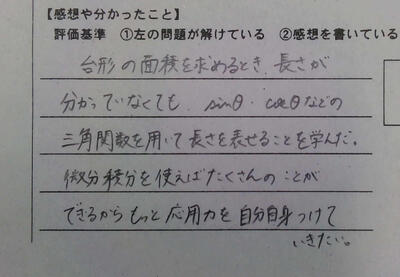 【感想や分かったこと】
評価基準 ①左の問題が解けている ②感想を書いている
台形の面積を求めるとき、長さが
分かっていなくても、sinθ・cosθなどの
三角関数を用いて長さを表せることを学んだ。
微分積分を使えばたくさんのことが
できるからもっと応用力を自分自身つけて
いきたい。